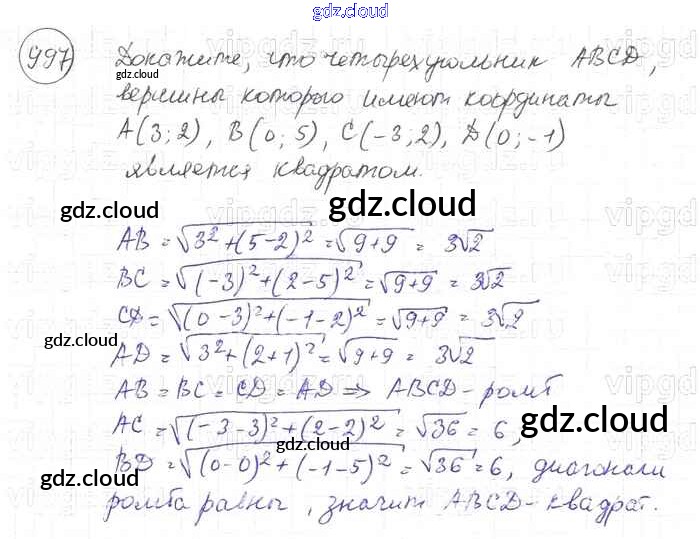 gdz.cloud
997) Докажите, что четырехугольник ABCD,
gdz.cloud
вершины которого имеют координаты
A(3;2), B(0;5), C(-3;2), D(0;-1)
является квадратом.
gdz.cloud gdz.cloud
AB = √(3²+(5-2)²) = √(9+9) = 3√2
BC = √((-3)²+(2-5)²) = √(9+9) = 3√2
gdz.cloud
CD = √((0-3)²+(-1-2)²) = √(9+9) = 3√2
AD = √(3²+(2+1)²) = √(9+9) = 3√2
gdz.cloud
AB = BC = CD = AD ⇒ ABCD - ромб
AC = √((-3-3)²+(2-2)²) = √36 = 6,
gdz.cloud gdz.cloud gdz.cloud
BD = √((0-0)²+(-1-5)²) = √36 = 6, диагонали
ромба равны, значит ABCD - квадрат.